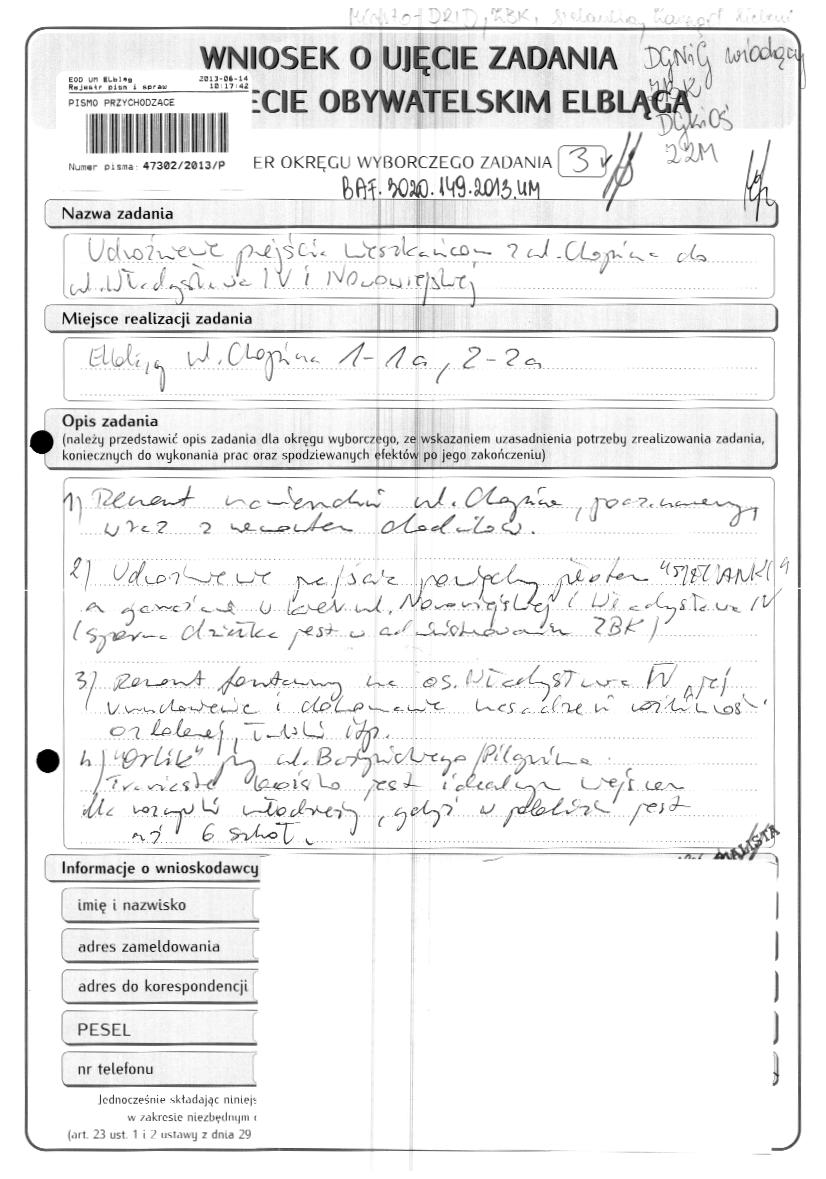 Miasto - DZID, ZBK, sielanka, Zarząd Zieleni
WNIOSEK O UJĘCIE ZADANIA
DGNiG wiodący
ECIE OBYWATELSKIM ELBLĄGA
ZBK
DGKiOŚ
ZZM
EOD UM Elbląg 2013-06-14
Rejestr pism i spraw 10:17:42
PISMO PRZYCHODZĄCE
Numer pisma: 47302/2013/P
ER OKRĘGU WYBORCZEGO ZADANIA 3
BAF.3020.149.2013.UM
Nazwa zadania
Udrożnienie przejścia mieszkańcom z ul. Chopina do
ul. Władysława IV i Nowowiejskiej
Miejsce realizacji zadania
Elbląg ul. Chopina 1-1a, 2-2a
Opis zadania
(należy przedstawić opis zadania dla okręgu wyborczego, ze wskazaniem uzasadnienia potrzeby zrealizowania zadania,
koniecznych do wykonania prac oraz spodziewanych efektów po jego zakończeniu)
1) Remont nawierzchni ul. Chopina,
wraz z remontem chodników.
2) Udrożnienie przejścia pomiędzy płotem "SIELANKI"
a garażami w kier. ul. Nowowiejskiej i Władysława IV
(sporna działka jest w administrowaniu ZBK)
3) Remont fontanny na os. Władysława IV, jej
uruchomienie i dokonanie nasadzeń roślinność
ozdobnej, itp.
4) "Orlik" przy ul. Bożynickiego/Pilgrima
Trawiaste boisko jest idealnym miejscem
dla rozrywki młodzieży, gdyż w pobliżu jest
aż 6 szkół.
Informacje o wnioskodawcy
imię i nazwisko
adres zameldowania
adres do korespondencji
PESEL
nr telefonu
Jednocześnie składając niniejs
w zakresie niezbędnym
(art. 23 ust. 1 i 2 ustawy z dnia 29